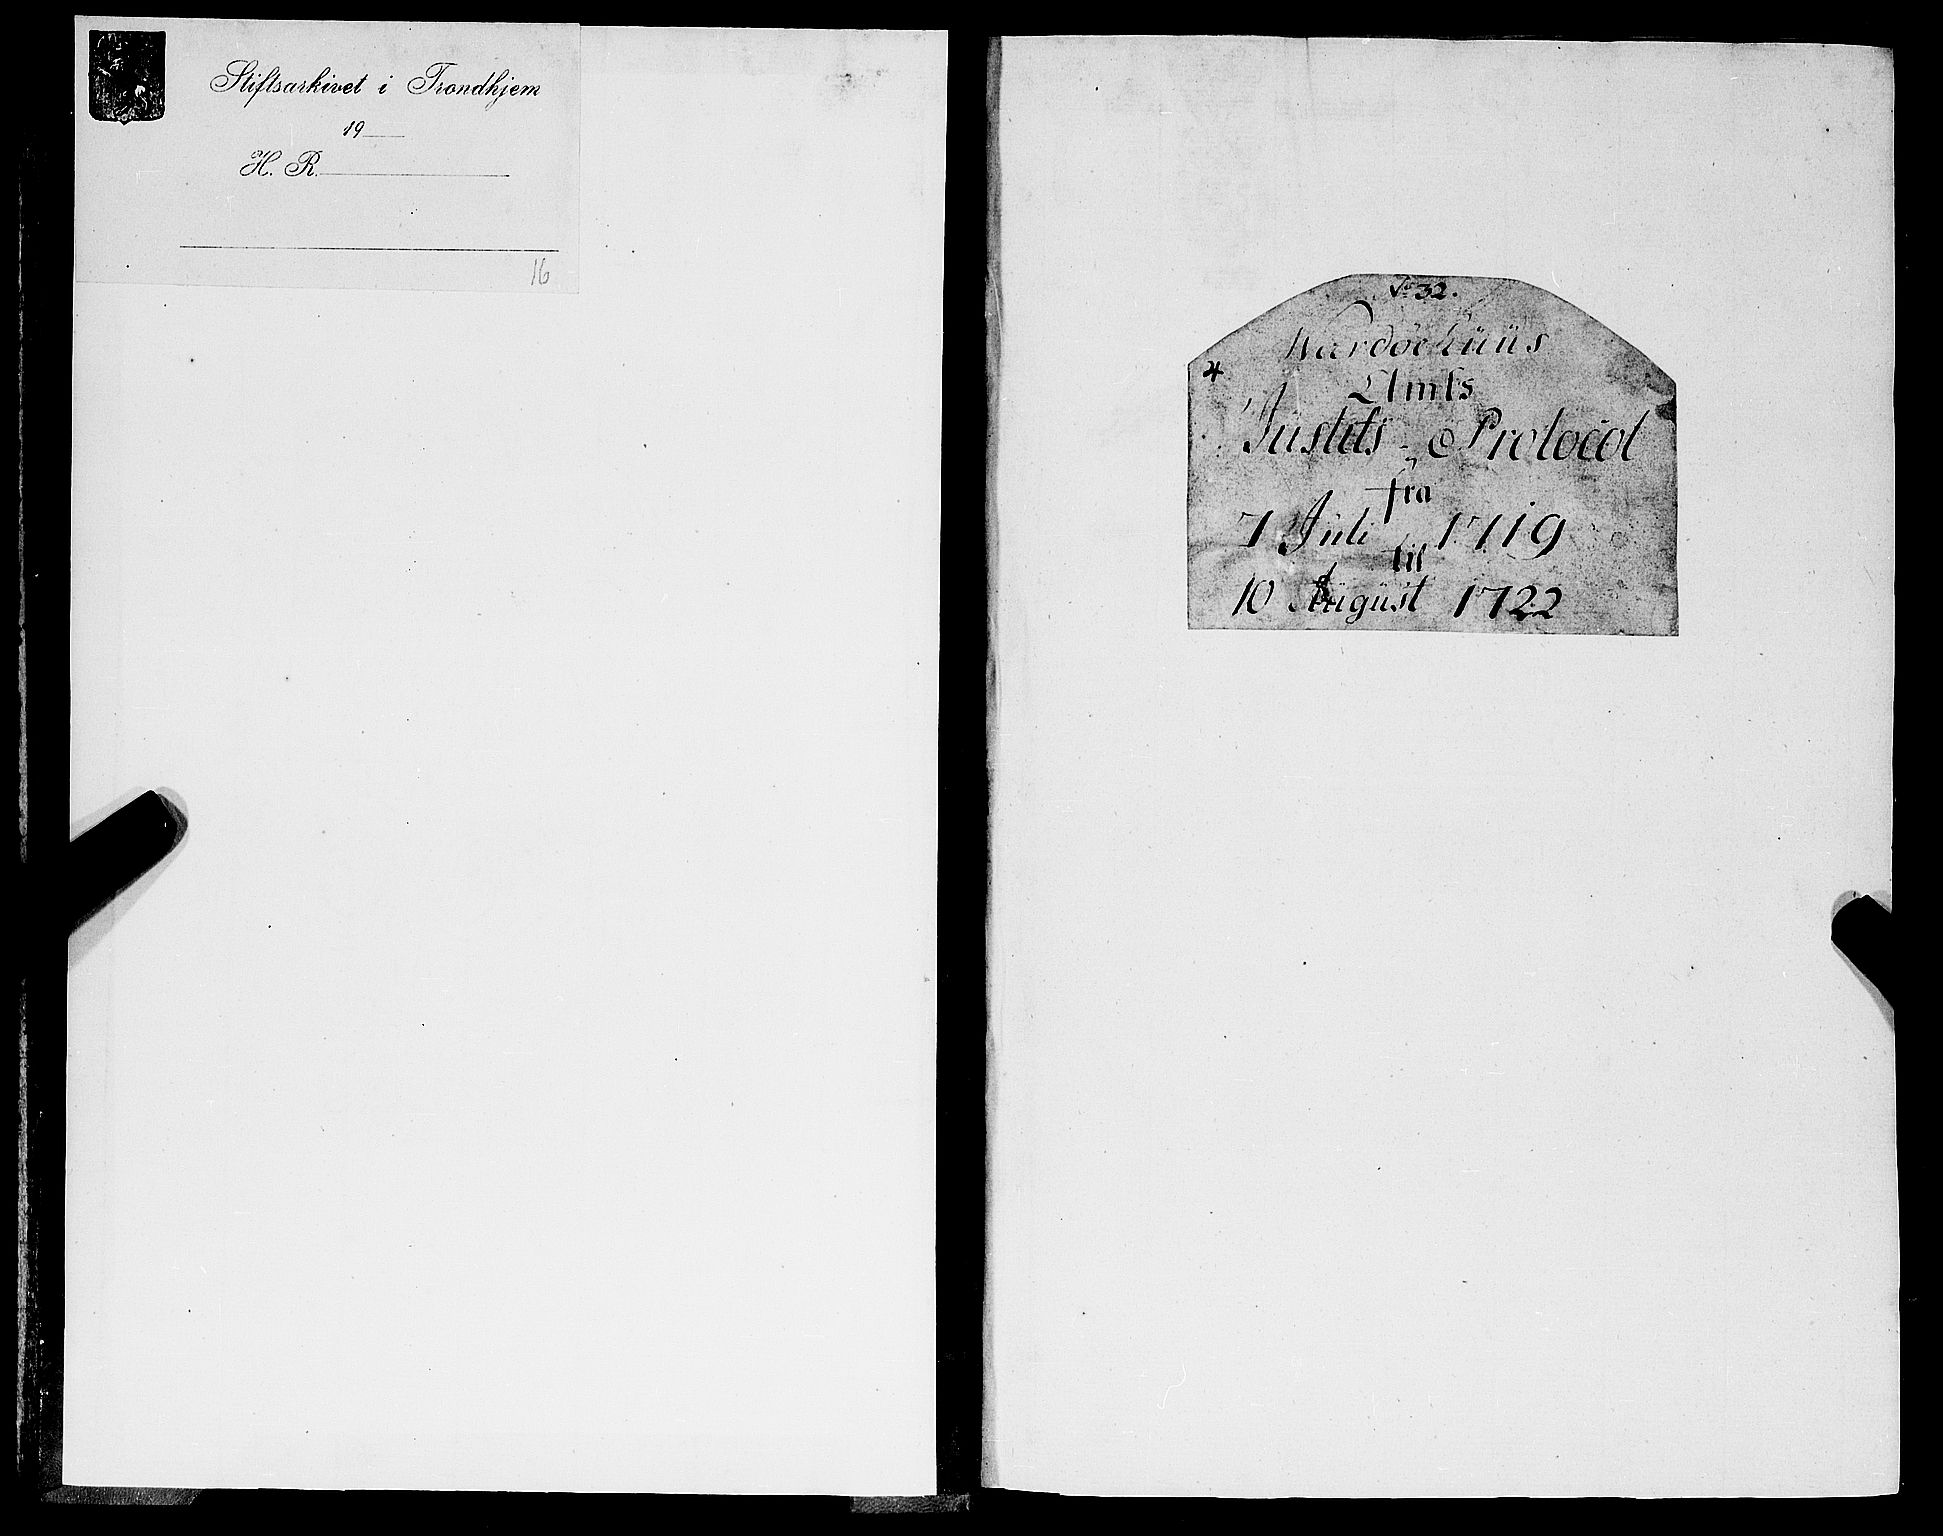 Stiftsarkivet i Trondhjem
19
H. R.
16
No 32.
Wardøehüüs
4
Amts
Justits-Protocol
fra
7 Juli 1719
til
10 Aügüst 1722